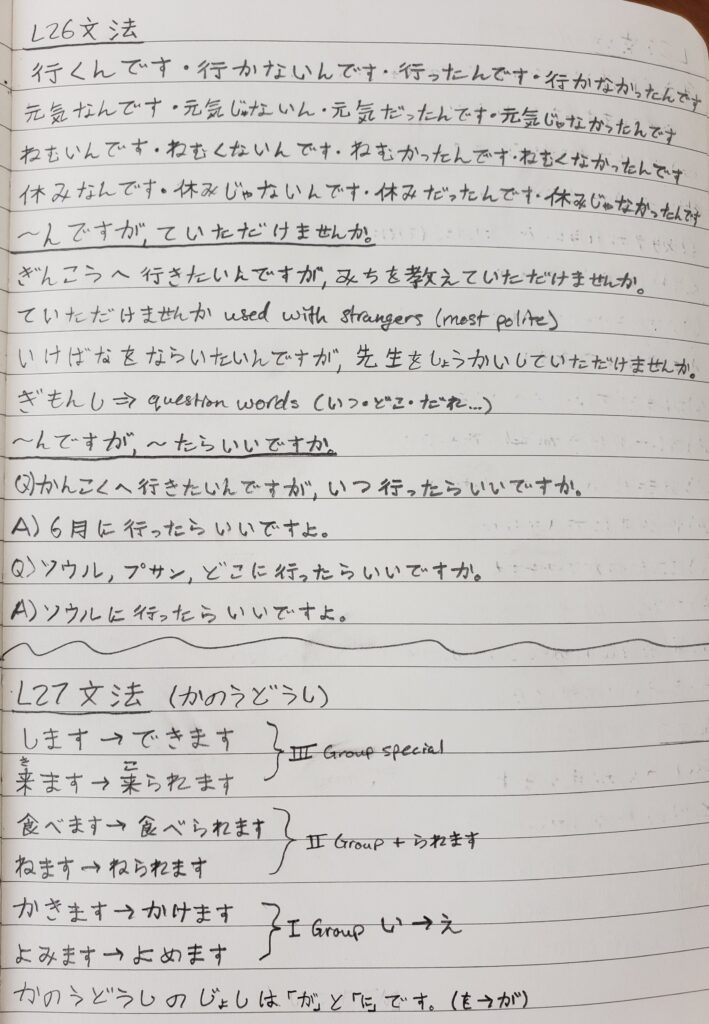 L26文法
行くんです・行かないんです・行ったんです・行かなかったんです
元気なんです・元気じゃないん・元気だったんです・元気じゃなかったんです
ねむいんです・ねむくないんです・ねむかったんです・ねむくなかったんです
休みなんです・休みじゃないんです・休みだったんです・休みじゃなかったんです
〜んですが,ていただけませんか。
ぎんこうへ行きたいんですが,みちを教えていただけませんか。
ていただけませんか used with strangers (most polite)
いけばなをならいたいんですが,先生をしょうかいしていただけませんか。
ぎもんし⇒question words (いつ・どこ・だれ...)
〜んですが,〜たらいいですか。
Q)かんこくへ行きたいんですが,いつ行ったらいいですか。
A)6月に行ったらいいですよ。
Q)ソウル,プサン,どこに行ったらいいですか。
A)ソウルに行ったらいいですよ。
L27文法 (かのうどうし)
します→できます
III Group special
き こ
来ます→来られます
食べます→食べられます
II Group +られます
ねます→ねられます
かきます→かけます
I Group い→え
よみます→よめます
かのうどうしのじょしは「が」と「に」です。(を→が)